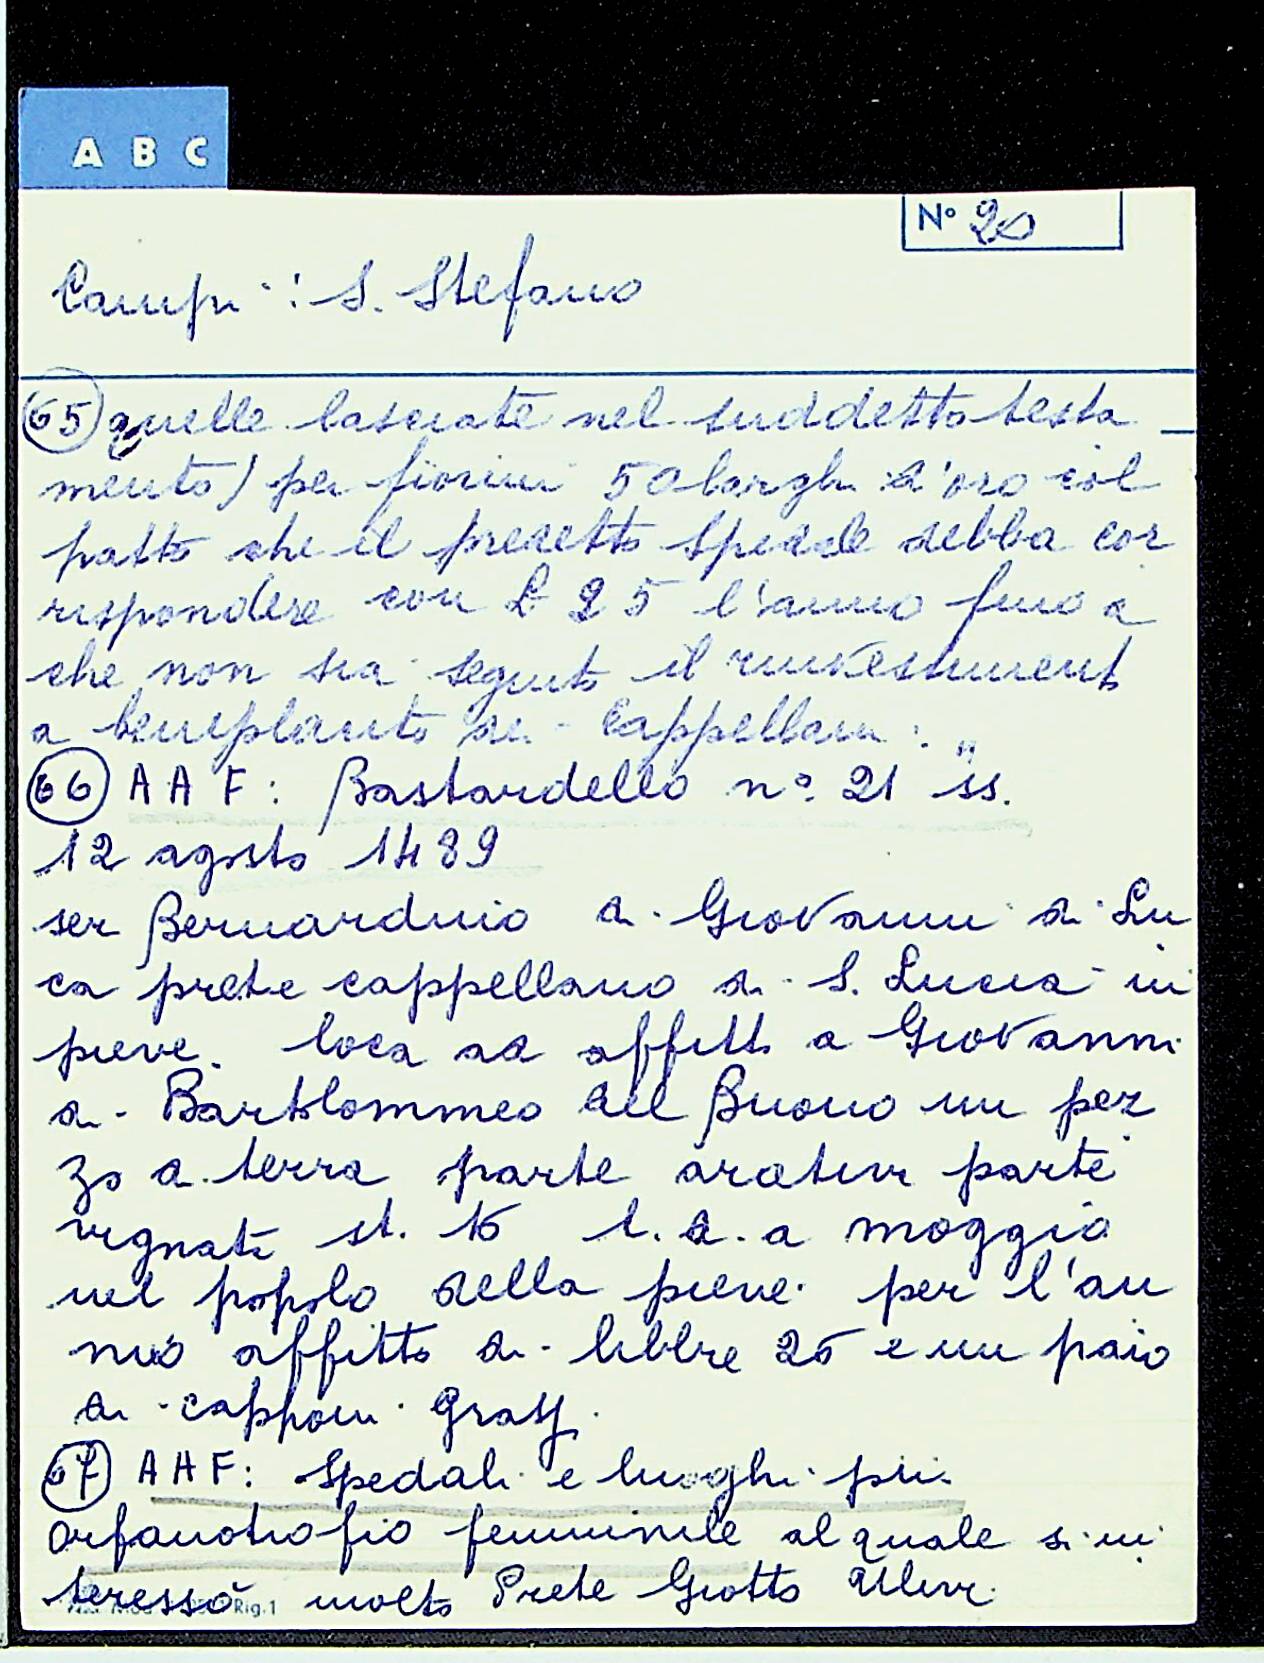 A B C
N° 20
Campi : S. Stefano
65 quelle lasciate nel suddetto testa
mento) per fiorini 50 larghi d'oro col
patto che il predetto Spedale debba cor
rispondere con £ 25 l'anno fino a
che non sia seguito il rinvestimento
a beneplacito di Cappellani. "
66 A A F: Bastardello n°. 21 ss.
12 agosto 1489
ser Bernardino di Giovanni di Lu
ca prete cappellano di S. Lucia in
pieve. loca ad affitto a Giovanni
di Bartolommeo del Buono un pez
zo di terra parte arativi parte
vignati st. 16 l. d. a moggio
nel popolo della pieve. per l'an
nuo affitto di libbre 25 e un paio
di capponi grassi.
67 A A F: Spedali e luoghi pii
Orfanotrofio femminile al quale si in
teressò molto Prete Giotto Ulivi
Rig.1